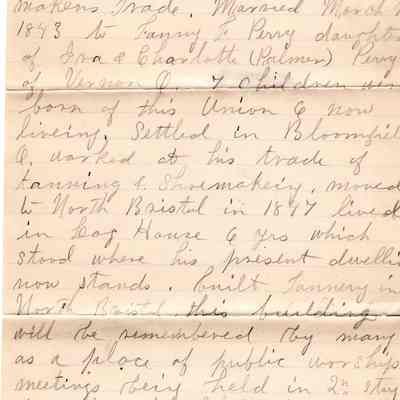 makers Trade. Married March
1843 to Fanny F Perry daughter
of Ira & Charlotte (Palmer) Perry
of Vernon O. 7 children wer
born of this Union 6 now
liveing. Settled in Bloomfiel
O. worked at his trade of
tanning & Shoemakeing. moved
to North Bristol in 1847 lived
in Log House 6 yrs which
stood where his present dwellin
now stands. Built Tannery in
North Bristol this building
will be remembered by many
as a place of public worship
meetings being held in 2n stoy